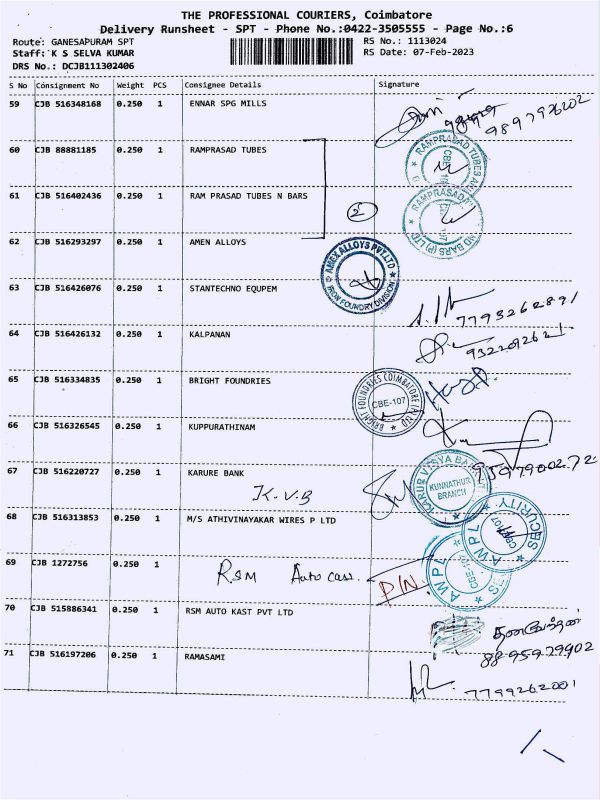 THE PROFESSIONAL COURIERS, Coimbatore
Delivery Runsheet - SPT - Phone No.:0422-3505555 - Page No.:6
Route: GANESAPURAM SPT
RS No.: 1113024
Staff: K S SELVA KUMAR
RS Date: 07-Feb-2023
DRS No.: DCJB111302406
S No Consignment No Weight PCS Consignee Details Signature
59 CJB 516348168 0.250 1 ENNAR SPG MILLS
9897936202
60 CJB 88881185 0.250 1 RAMPRASAD TUBES
61 CJB 516402436 0.250 1 RAM PRASAD TUBES N BARS
2
62 CJB 516293297 0.250 1 AMEN ALLOYS
AMEX ALLOYS PVT.LTD
IRON FOUNDRY DIVISION
63 CJB 516426076 0.250 1 STANTECHNO EQUPEM
7793262891
64 CJB 516426132 0.250 1 KALPANAN
65 CJB 516334835 0.250 1 BRIGHT FOUNDRIES
BRIGHT FOUNDRIES COIMBATORE (P) LTD
CBE-107
66 CJB 516326545 0.250 1 KUPPURATHINAM
9597900272
67 CJB 516220727 0.250 1 KARURE BANK
K.V.B
KUNNATHUR
BRANCH
68 CJB 516313853 0.250 1 M/S ATHIVINAYAKAR WIRES P LTD
AWPL SECURITY
69 CJB 1272756 0.250 1 RSM Auto cass.
P/N.
AWPL
70 CJB 515886341 0.250 1 RSM AUTO KAST PVT LTD
8895979902
71 CJB 516197206 0.250 1 RAMASAMI
7799262001